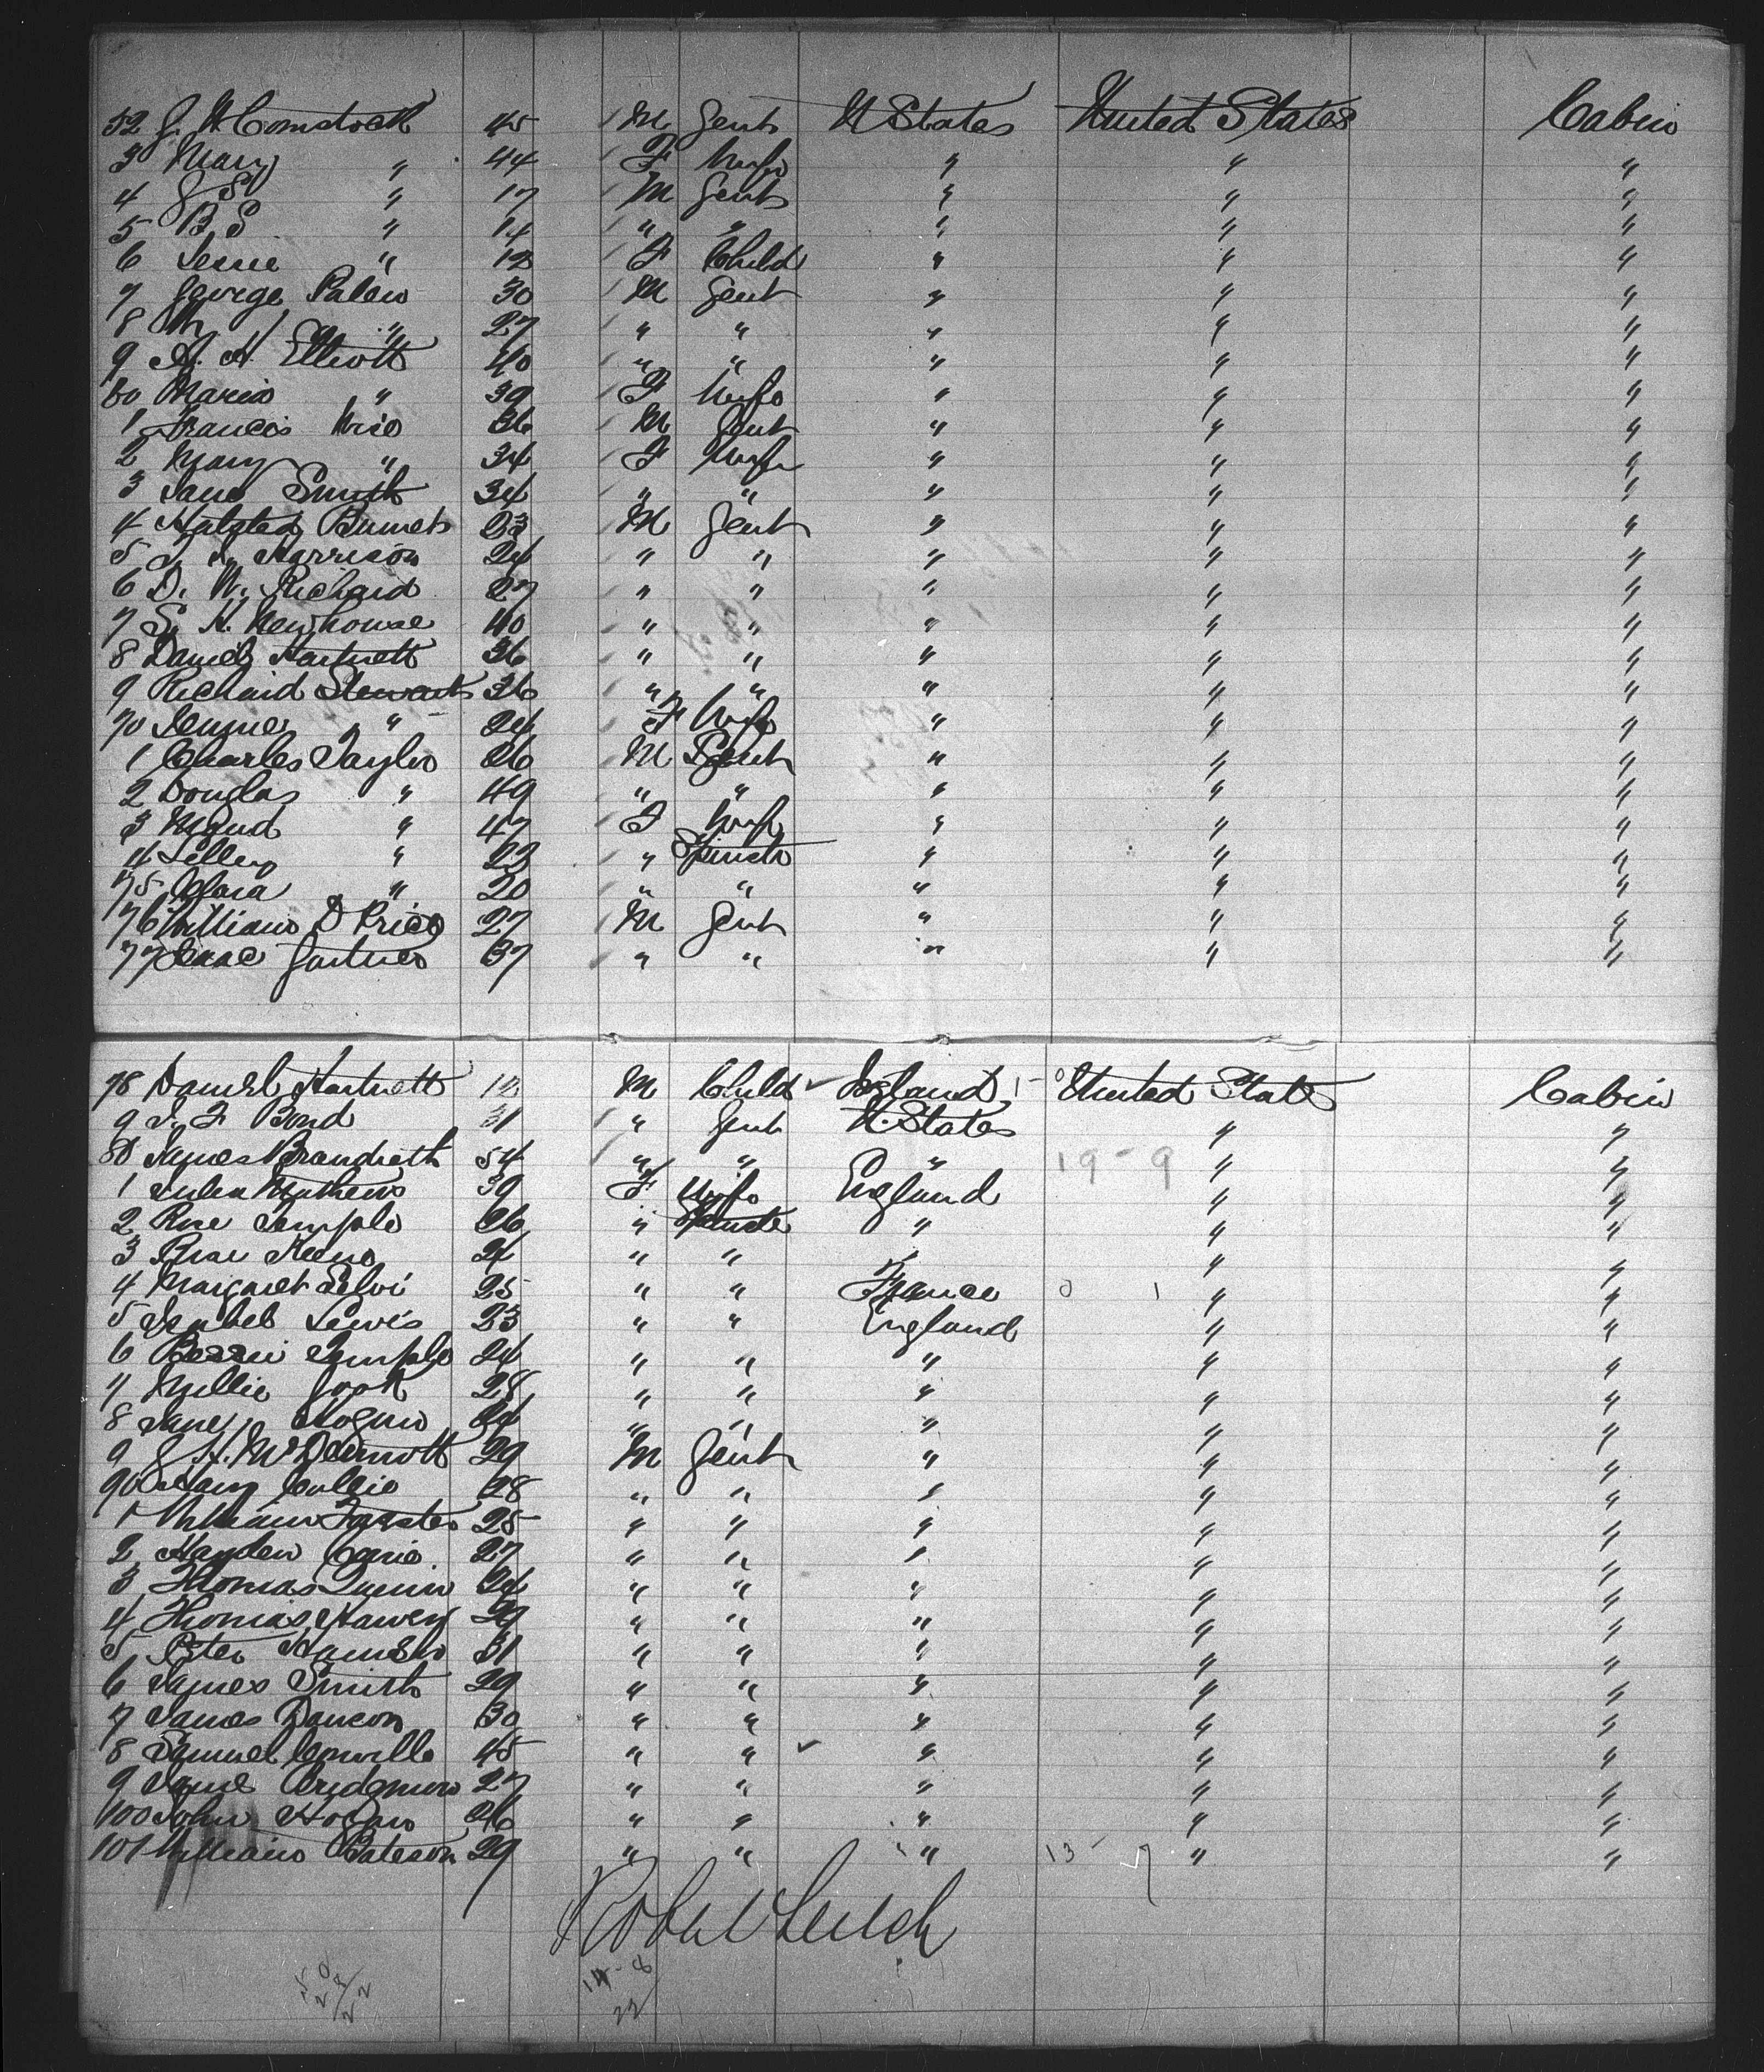 52 J. W Comstock 45 / M Gent U States United States Cabin
3 Mary " 44 / F Wife " " "
4 J S " 17 / M Gent " " "
5 B S " 14 / " " " " "
6 Jessie " 12 / F Child " " "
7 George Palen 30 / M Gent " " "
8 " 27 / " " " " "
9 A. A. Elliott 40 / " " " " "
60 Maria " 39 / F Wife " " "
1 Francis Wise 36 / M Gent " " "
2 Mary " 34 / F Wife " " "
3 Jane Smith 34 / " " " " "
4 Halsted Burnet 23 / M Gent " " "
5 Harrison 24 / " " " " "
6 D. W. Richard 27 / " " " " "
7 S. H. Newhouse 40 / " " " " "
8 Daniel Hartnett 36 / " " " " "
9 Richard Stewart 36 / " " " " "
70 Jennie " 24 / F Wife " " "
1 Charles Taylor 26 / M Gent " " "
2 Douglas " 49 / " " " " "
3 Maud " 47 / F Wife " " "
4 Lilley " 23 / " Spinstr " " "
75 Clara " 20 / " " " " "
76 William D Price 27 / M Gent " " "
77 Isaac Gartner 37 / " " " " "
78 Daniel Hartnett 12 M Child ✓ Ireland 1 - 0 United States Cabin
9 J. F Bond 31 / " Gent U. States " "
80 James Brandreth 54 / " " " 19 - 9 " "
1 Julia Mathews 39 F Wife England " "
2 Rose Temple 26 " Spinster " " "
3 Rose Keene 24 " " " " "
4 Margaret Selvi 25 " " France 0 1 " "
5 Isabel Lewis 23 " " England " "
6 Bessie Temple 24 " " " " "
7 Millie Cook 28 " " " " "
8 Jane Hogan 24 " " " " "
9 J. H. McDermott 29 M Gent " " "
90 Harry Collie 28 " " " " "
1 William Forster 25 " " " " "
2 Hayden 27 " " " " "
3 Thomas Quinn 24 " " " " "
4 Thomas Harvey 29 " " " " "
5 Peter Hansen 31 " " " " "
6 James Smith 29 " " " " "
7 James Dawson 30 " " " " "
8 Samuel Conville 45 " " ✓ " " "
9 Bridgman 27 " " " " "
100 John Hogan 26 " " " " "
101 William Bateson 29 " " " 13 - 7 " "
Robert Leech
50
28/22
14 - 8
22